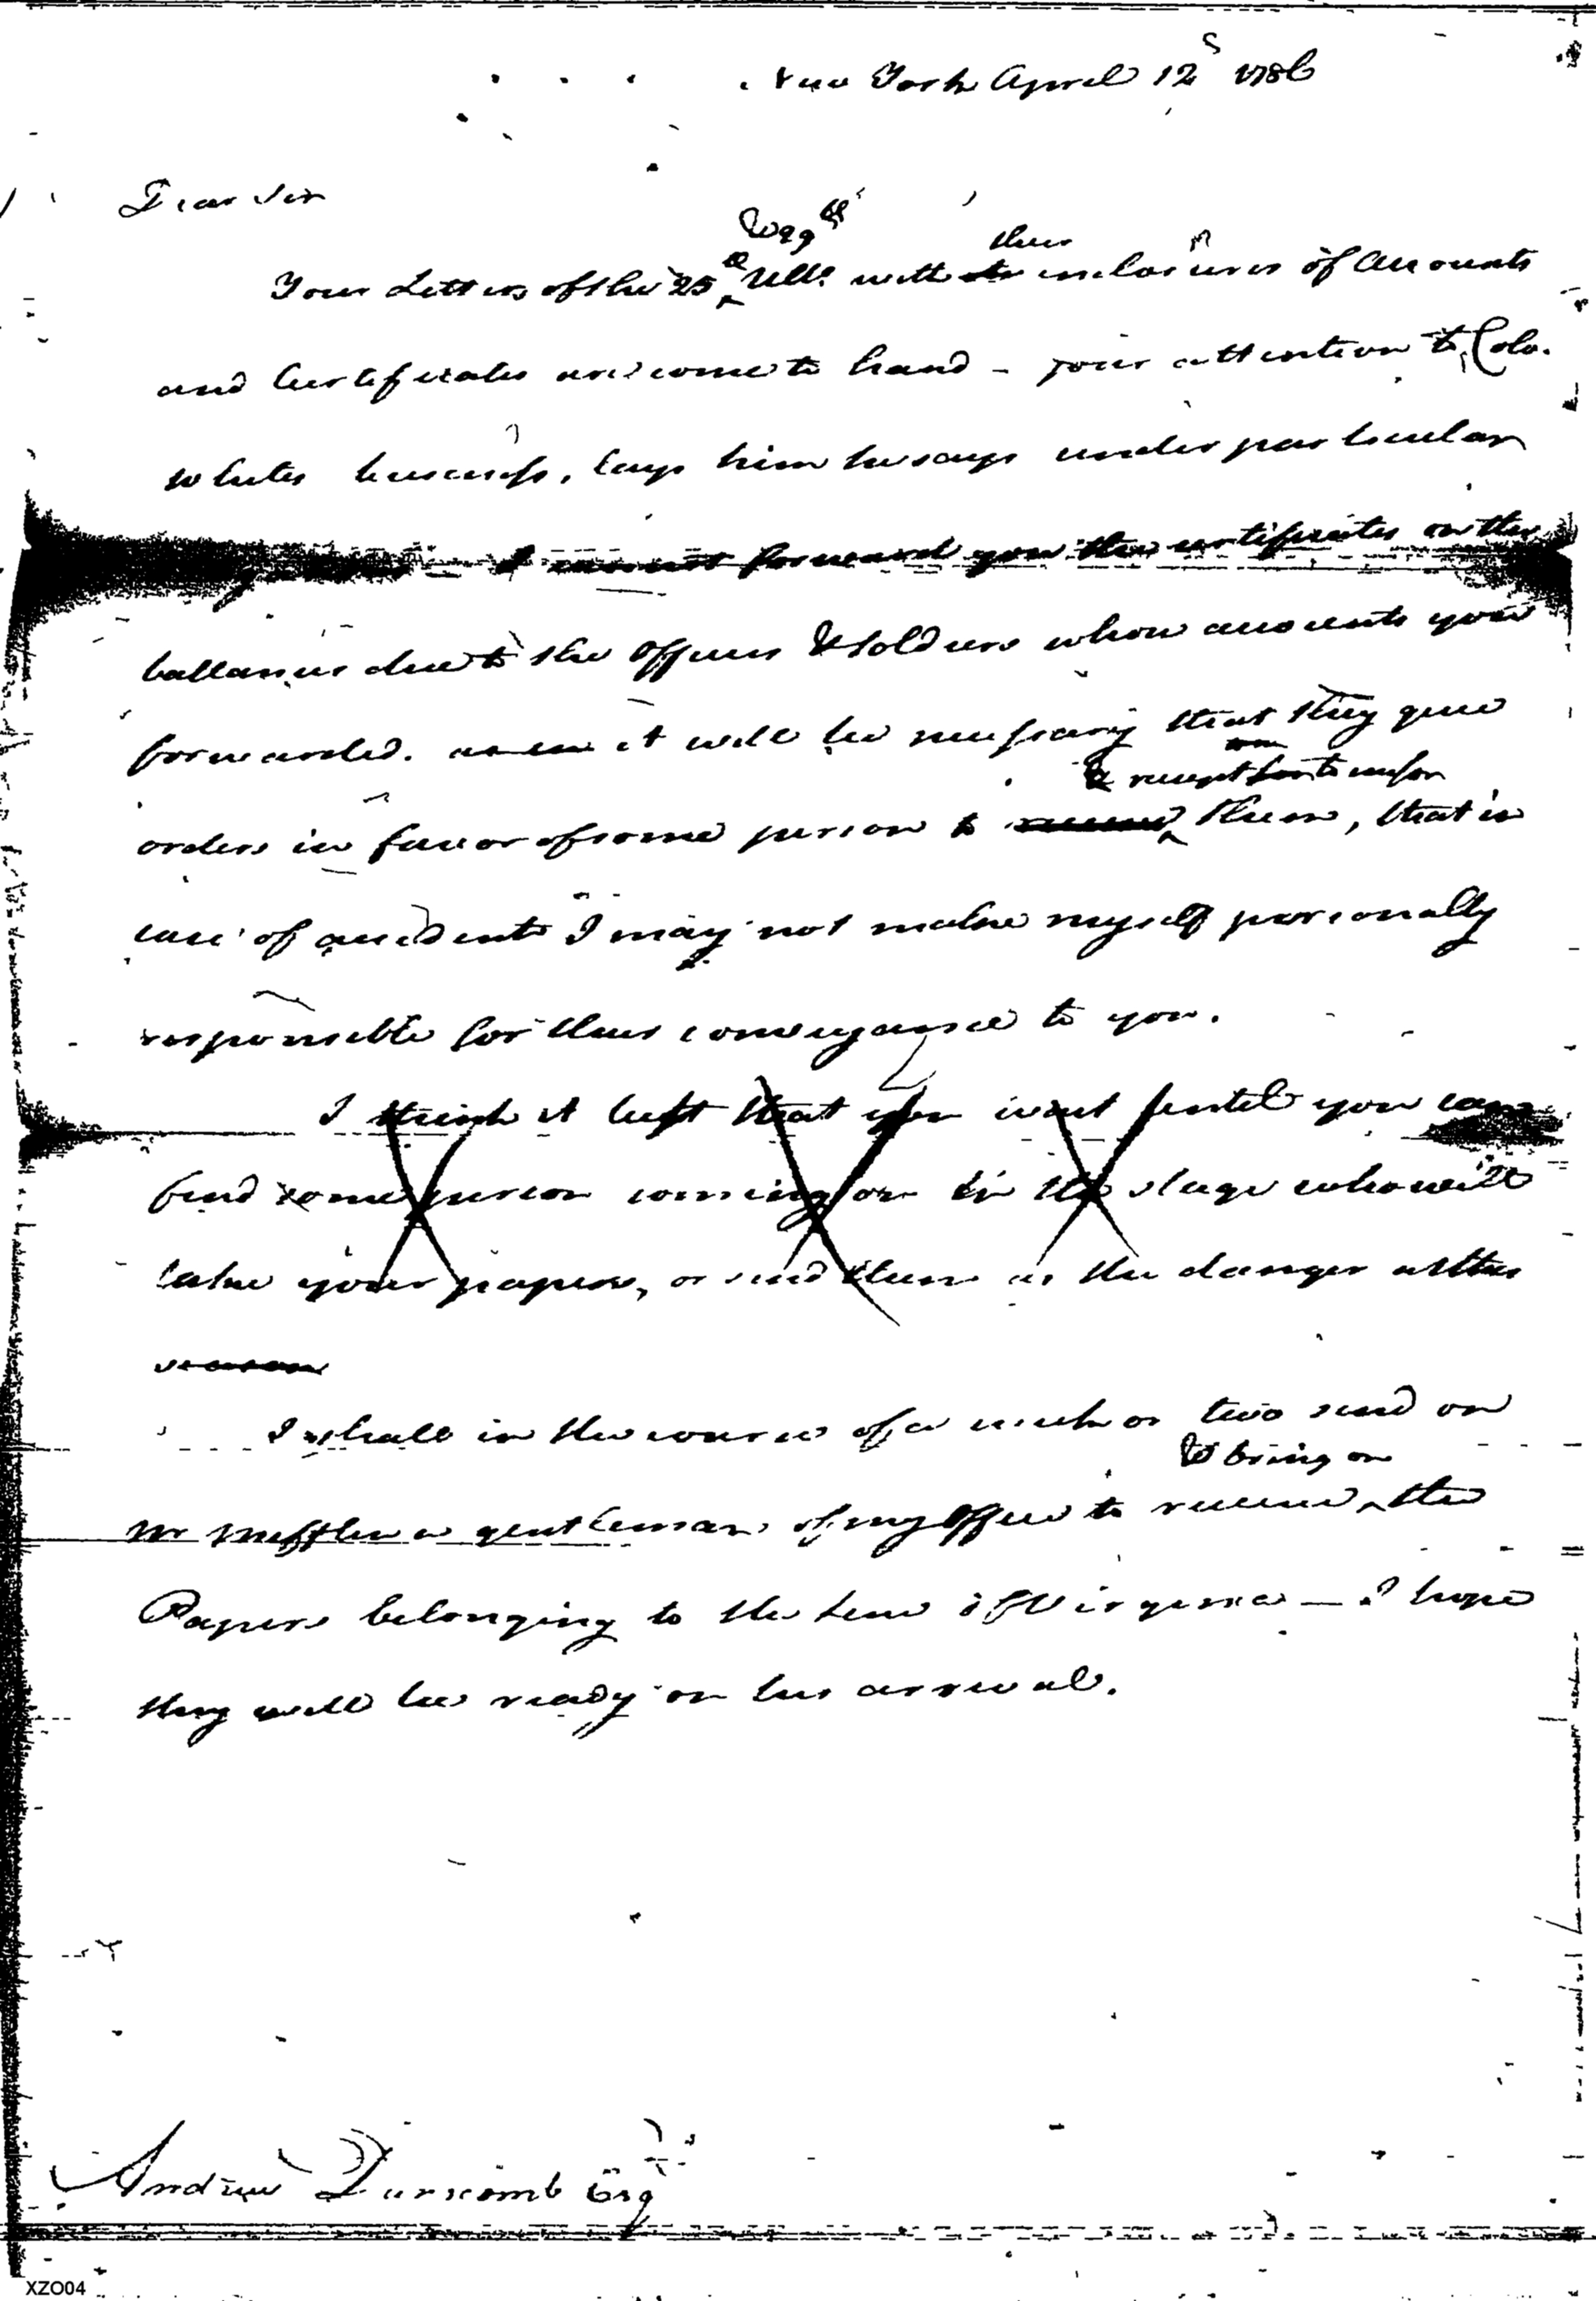 New York April 12 1786
Dear Sir
& 29th
their
Your Letters of the 25 Ulto. with the inclosures of Accounts
and Certificates are come to hand - your attention to Colo.
Whites business, lays him he says under particular
I cannot forward you the certificates on the
ballances due to the Officers & Soldiers whose accounts you
forwarded. it will be necessary that they give
& receipt for them
orders in favor of some person to receive them, that in
case of accidents I may not make myself personally
responsible for their conveyance to you.
I think it best that you wait until you can
find some person coming on in the stage who will
take your papers, or send them as the danger at this
season
I shall in the course of a week or two send on
& bring on
Mr Mifflin a gentleman of my Office to receive the
Papers belonging to the Line of Virginia — I hope
they will be ready on his arrival.
Andrew Dunscomb Esq
XZO04